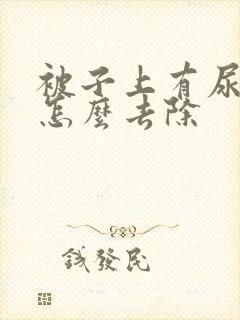 被子上有尿
怎麼去除
錢發民